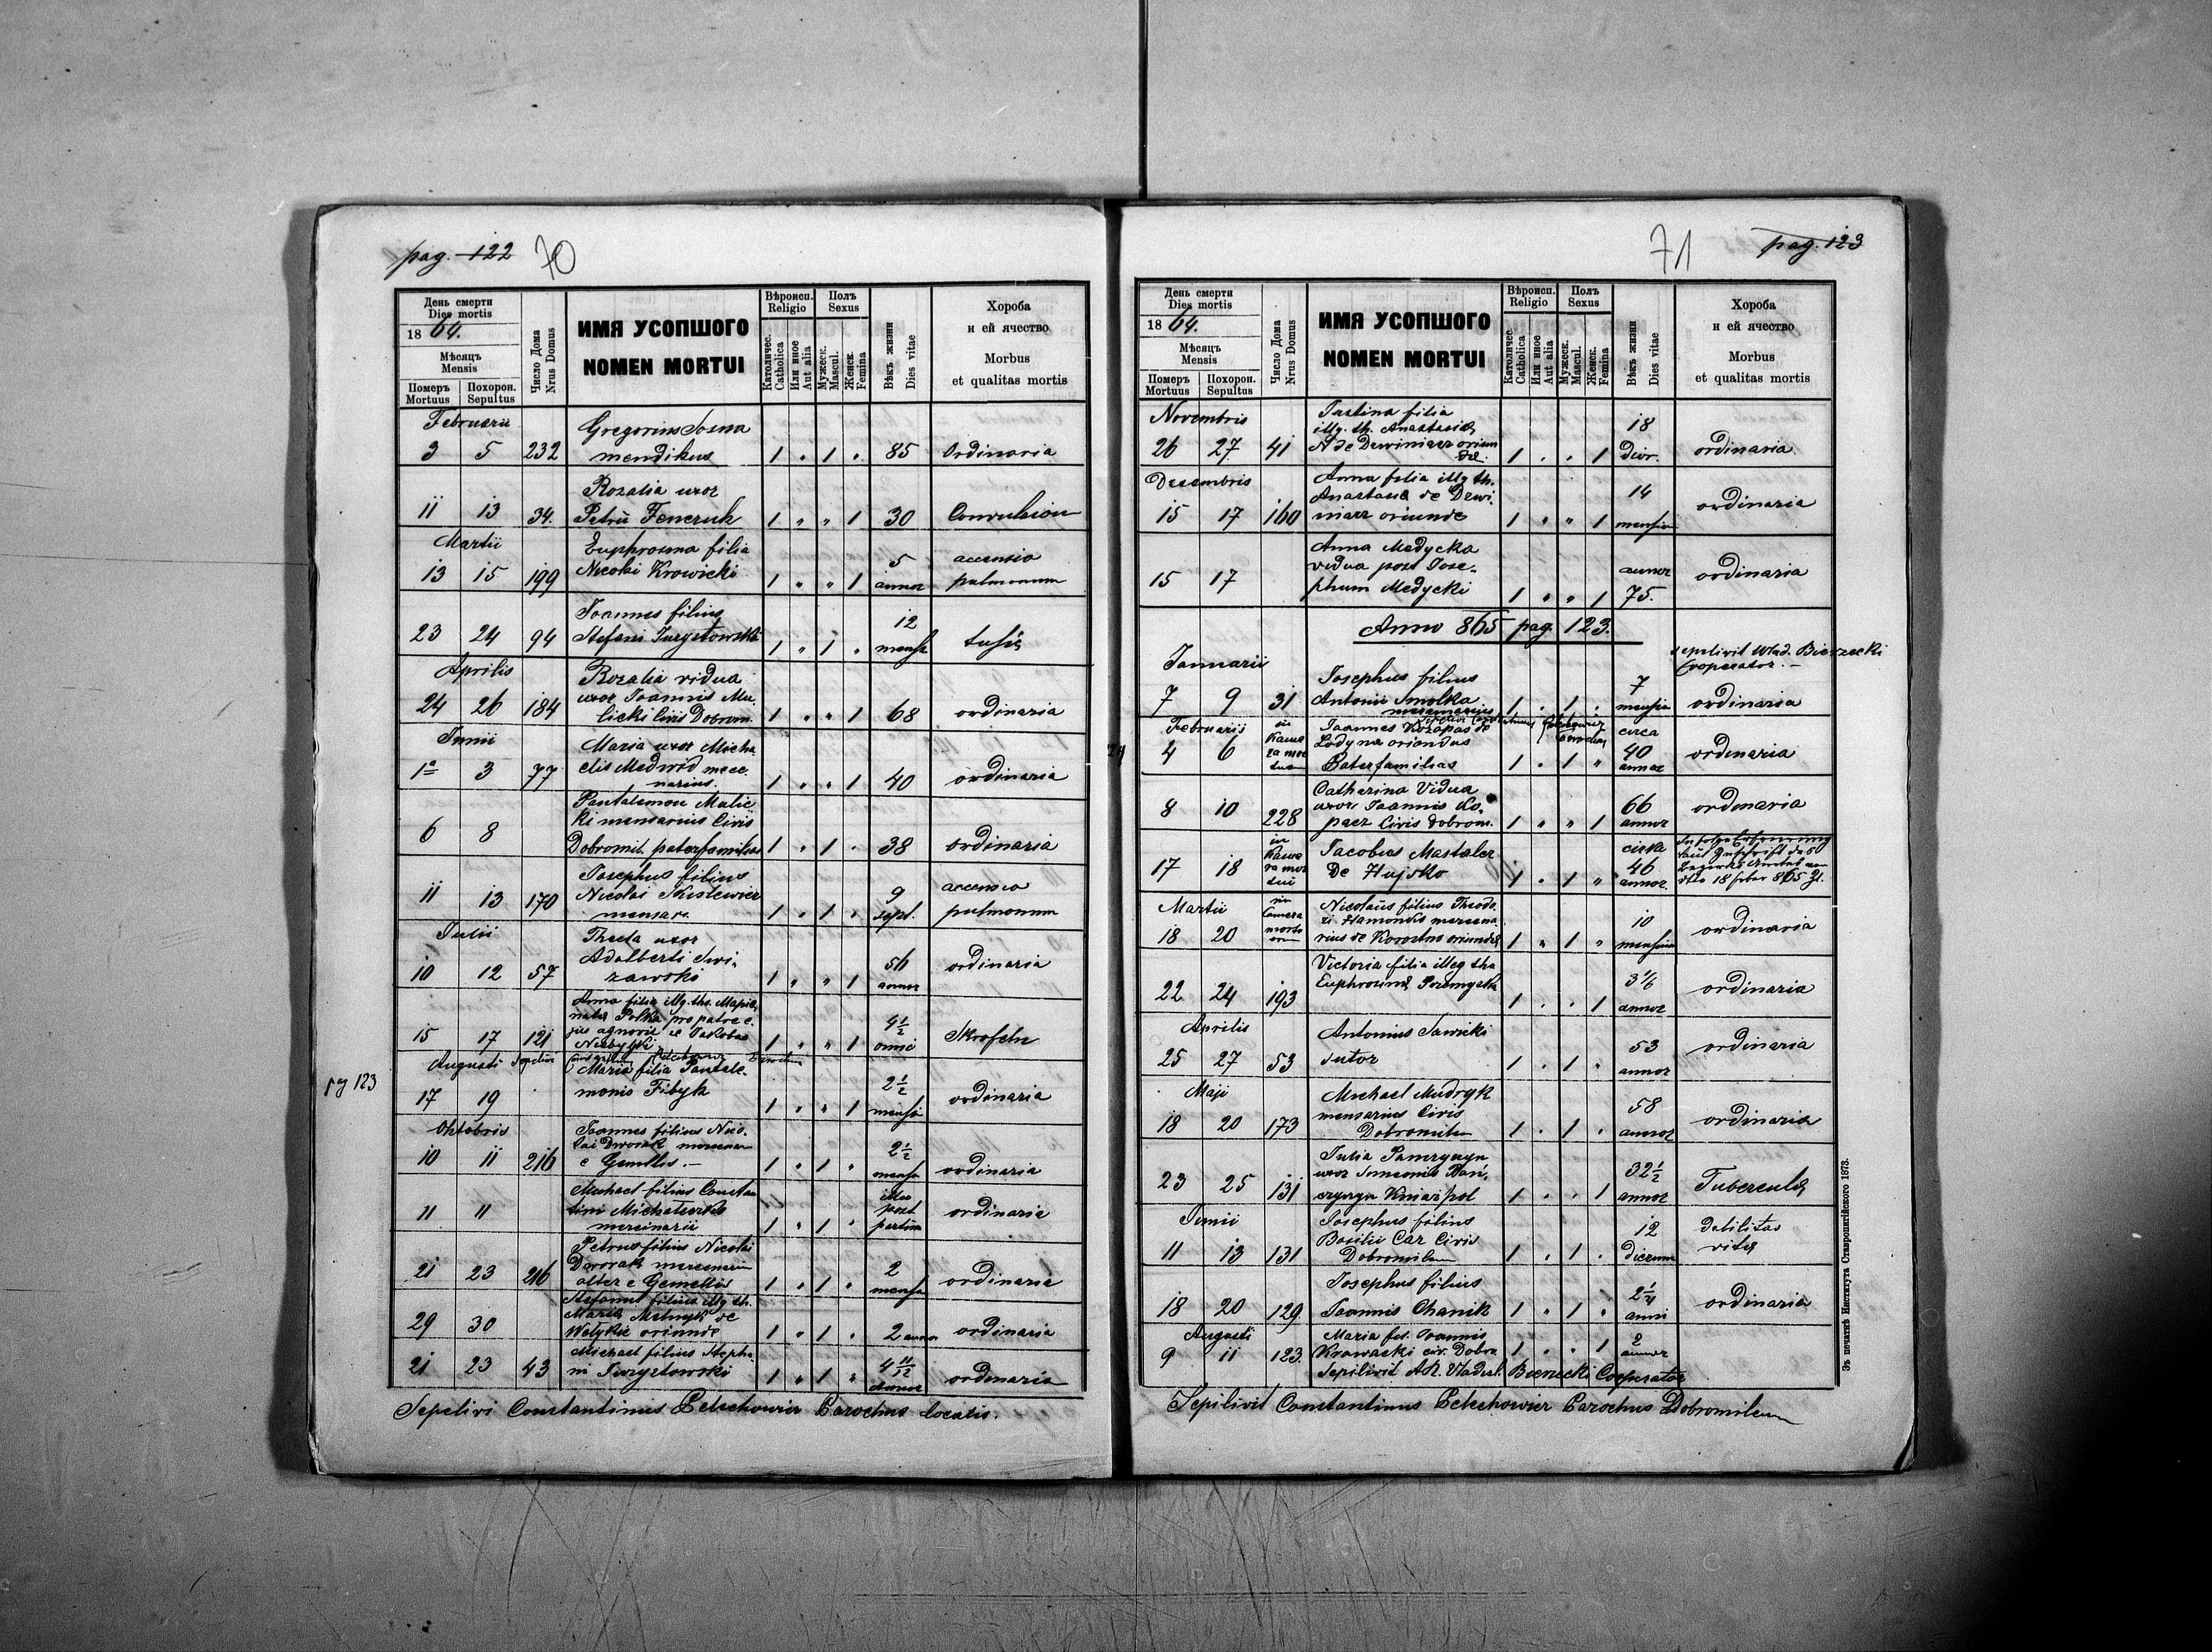 pag. 122 70
День смерти
Dies mortis
1864.
Мѣсяцъ
Mensis
Померъ Похорон.
Mortuus Sepultus
Число Дома
Nrus Domus
ИМЯ УСОПШОГО
NOMEN MORTUI
Вѣроисп.
Religio
Католичес.
Catholica
Или иное
Aut alia
Полъ
Sexus
Мужеск.
Mascul.
Женск.
Femina
Вѣкъ жизни
Dies vitae
Хороба
и ей ячество
Morbus
et qualitas mortis
Februarii
Gregorius Sosna
3 5 232 mendikus 1 " 1 " 85 Ordinaria
Rozalia uxor
11 13 34. Petri Fenczuk 1 " " 1 30 Convulsion
Martii
Euphrosina filia 5 accensio
13 15 199 Nicolai Krowicki 1 " " 1 annor pulmonum
Joannes filius 12
23 24 94 Stefani 1 " 1 " mens tussis
Aprilis
Rozalia vidua
uxor Joannis Ma
24 26 184 licki Civis Dobrom. 1 " " 1 68 ordinaria
Junii
Maria uxor Micha
1ª 3 77 elis Medwid merce
narius. 1 " " 1 40 ordinaria
Pantalemon Malic
ki mensarius Civis
6 8 Dobromil. paterfamilias 1 " 1 " 38 ordinaria
Josephus filius
Nicolai Kislewicz 9 accensio
11 13 170 mensar. 1 " 1 " sept. pulmonum
Julii
Thecla uxor
Adalberti Swi 56
10 12 57 zawski 1 " " 1 annor ordinaria
Anna filia illg. thr. Maria
4 1/2
15 17 121 1 " " 1 anni Skrofeln
Augusti
pg 123
Maria filia Pantale. 2 1/2
17 19 monis Fibyk 1 " " 1 mensi ordinaria
Oktobris
Joannes filius Nico.
lai Dworak mercenar 2 1/2
10 11 216 e Gemellis.— 1 " 1 " mens ordinaria
Michael filius Constan
tini post
11 11 mercinarii 1 " 1 " partum ordinaria
Petrus filius Nicolai
Dworak mercenarii 2
21 23 216 alter e Gemellis 1 " 1 " mens ordinaria
Stefanus filius illg th.
Maria Melnyk de
29 30 oriunde 1 " 1 " 2 annor ordinaria
Michael filius Stepha 4 11/12
21 23 43 ni 1 " 1 " annor ordinaria
Sepelivi Constantinus Parochus localis.
71 pag. 123
День смерти
Dies mortis
1864.
Мѣсяцъ
Mensis
Померъ Похорон.
Mortuus Sepultus
Число Дома
Nrus Domus
ИМЯ УСОПШОГО
NOMEN MORTUI
Вѣроисп.
Religio
Католичес.
Catholica
Или иное
Aut alia
Полъ
Sexus
Мужеск.
Mascul.
Женск.
Femina
Вѣкъ жизни
Dies vitae
Хороба
и ей ячество
Morbus
et qualitas mortis
Novembris
Justina filia
illg. th. Anastasia 18
26 27 41 1 " " 1 dier. ordinaria
Decembris
Anna filia illg th.
Anastasia de Dzwi 14
15 17 160 niacz oriunde 1 " " 1 mensium ordinaria
Anna Medycka
vidua post Jose- annor
15 17 phum Medycki 1 " " 1 75. ordinaria
Anno 865 pag. 123.
sepelivit Wlad. Bierzecki
Cooperator.—
Januarii
Josephus filius 7
7 9 31 Antonii Smolka 1 " 1 " mensium ordinaria
mercenarius
Februaris
in Joannes Kozopas de circa
4 6 Lodyna oriundus 40
Paterfamilias 1 " 1 " annor ordinaria
Catharina Vidua
uxor Joannis Ko. 66
8 10 228 pacz Civis Dobrom. 1 " " 1 annor ordinaria
in Jacobus Mastaler cirka
17 18 de Hujsko 1 " 1 " 46 annor.
18 feber 865
Martii
in Nicolaus filius Theodo
Camera ri Hamondis mercena 10
18 20 mortuorum rius de Korostno oriundus 1 " 1 " mensium ordinaria
Victoria filia illeg tha 3 1/6
22 24 193 Euphrosina 1 " " 1 annor ordinaria
Aprilis
Antonius Sawicki 53
25 27 53 sutor 1 " 1 " annor ordinaria
Maji
Michael Mudryk
mensarius Civis 58
18 20 173 Dobromilen 1 " 1 " annor ordinaria
Julia
uxor Simeonis Pań 32 1/2
23 25 131 czyszyn 1 " " 1 annor Tuberculus
Junii
Josephus filius 12 Debilitas
Basilii Car Civis
11 13 131 Dobromilen 1 " 1 " dierum vitae
Josephus filius 2 1/4
18 20 129. Joannis Chanik 1 " 1 " anni ordinaria
Augusti
Maria fil. Joannis 2
9 11 123. Krowacki civ. Dobro 1 " " 1 annor
Sepilivit AR. Vladisl. Bierzecki Cooperator
Sepilivit Constantinus Parochus Dobromilensis
Зъ печатнѣ Института Ставропигійского 1873.